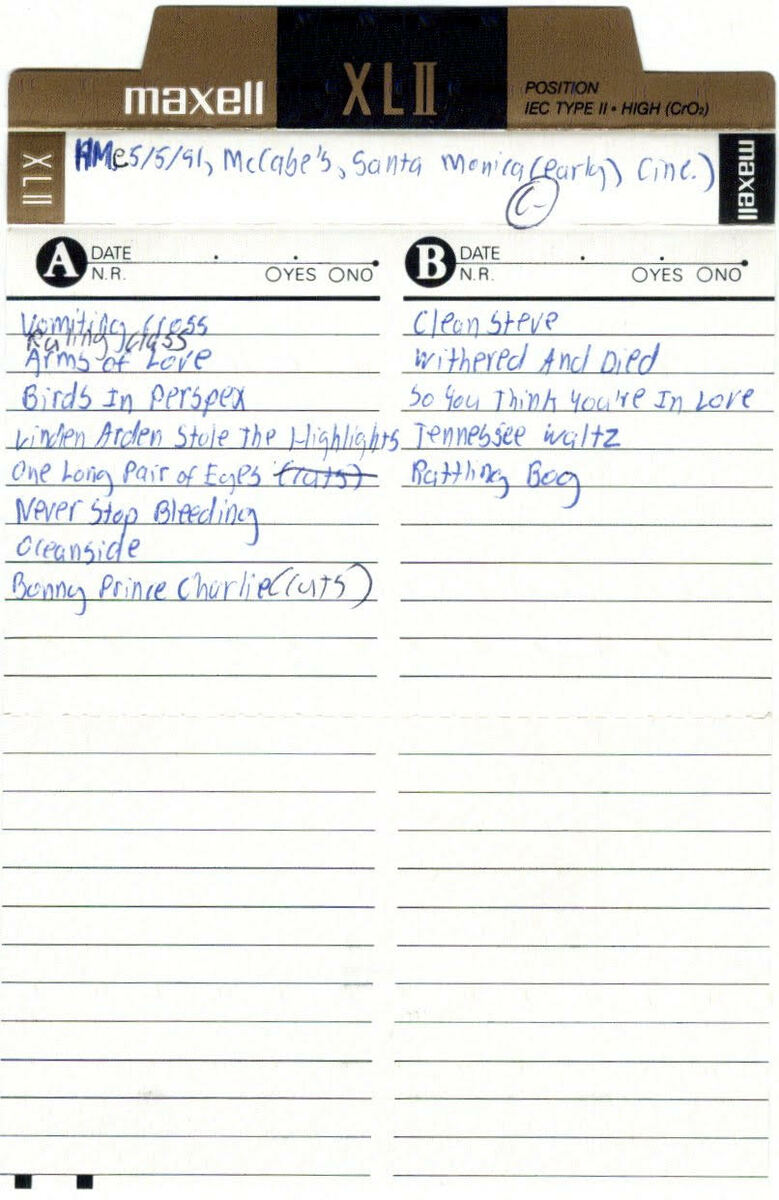 maxell XLII POSITION
IEC TYPE II • HIGH (CrO₂)
XLII HMc 5/5/91, McCabe's, Santa Monica (early) (inc.) maxell
C-
A DATE . .
N.R. OYES ONO
B DATE . .
N.R. OYES ONO
Vomiting Cross
Ruling Class
Arms of Love
Birds In Perspex
Linden Arden Stole The Highlights
One Long Pair of Eyes (cuts)
Never Stop Bleeding
Oceanside
Bonny Prince Charlie (cuts)
Clean Steve
Withered And Died
So You Think You're In Love
Tennessee Waltz
Rattling Bog